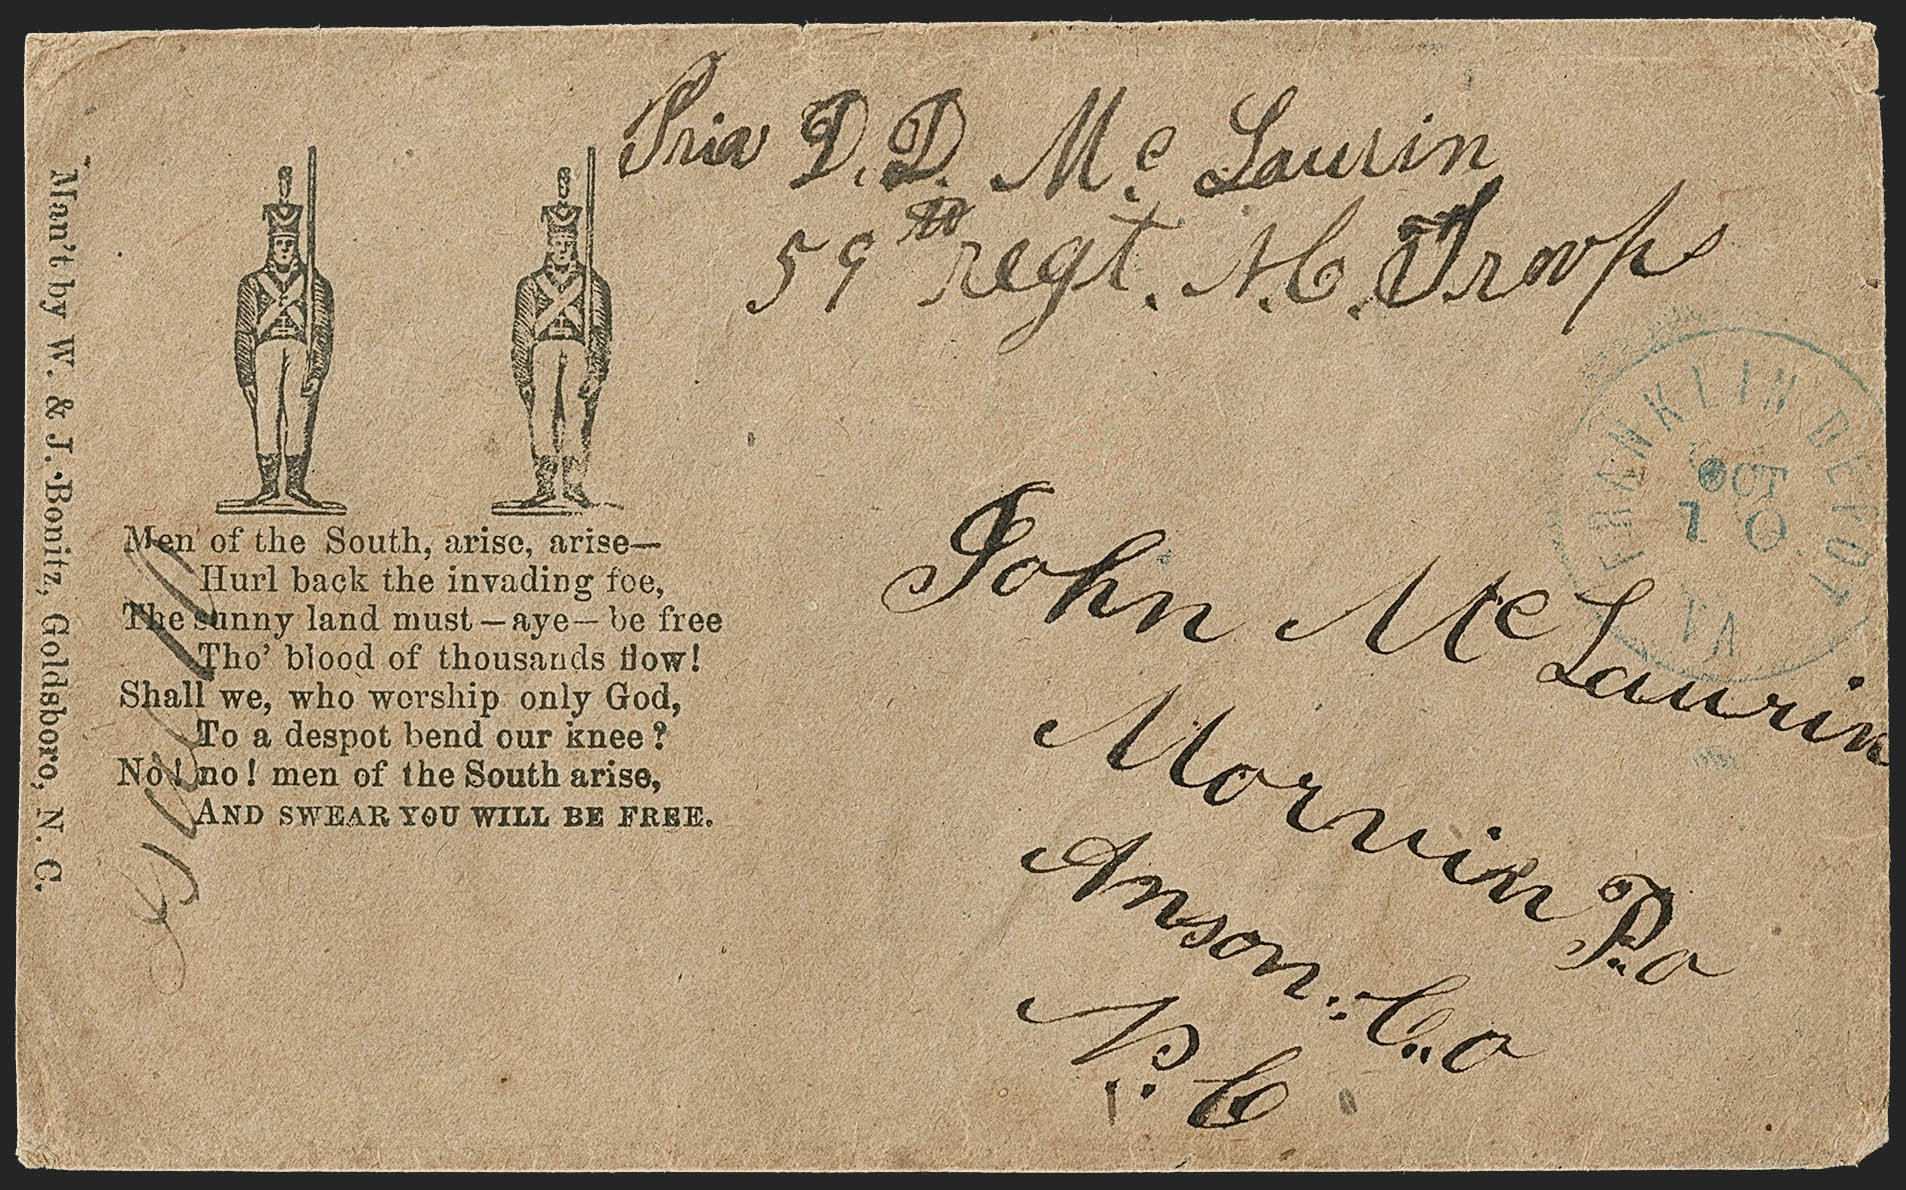 Priv D. D. Mc Laurin
59th regt. N.C. Troops
FRANKLIN DEPOT
OCT
10
VA
Man't by W. & J. Bonitz, Goldsboro, N. C.
Men of the South, arise, arise—
Hurl back the invading foe,
The sunny land must—aye—be free
Tho' blood of thousands flow!
Shall we, who worship only God,
To a despot bend our knee?
No! no! men of the South arise,
AND SWEAR YOU WILL BE FREE.
John McLaurin
Morvin P.o
Anson. Co
N. C